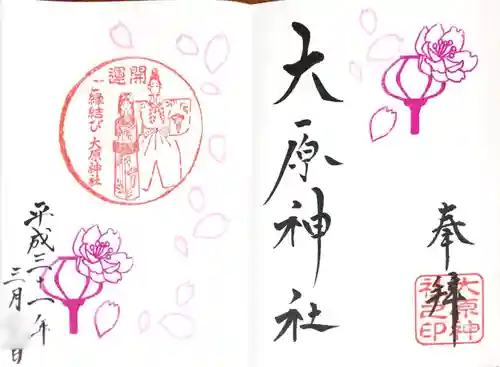 奉拝
大原神社之印
大原神社
開運
ご縁結び 大原神社
平成三十一年
三月 日